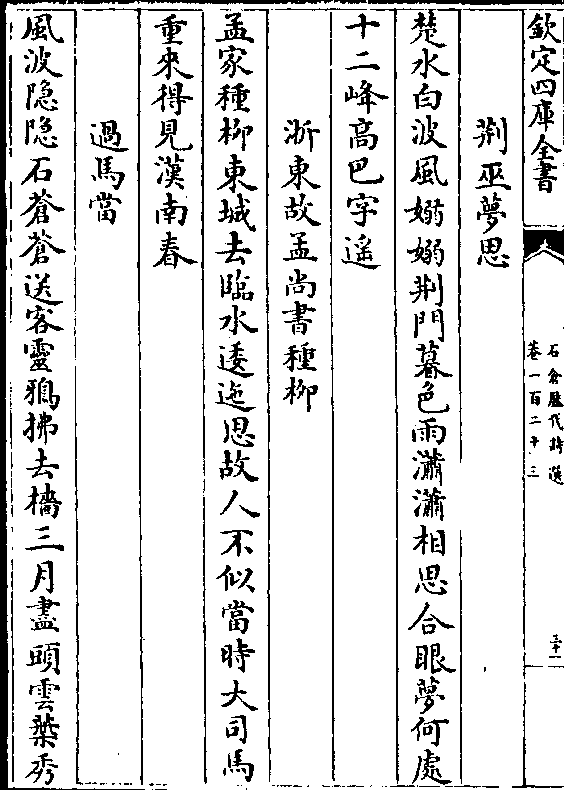 欽定四庫全書
石倉歷代詩選
卷一百二十三
三十一
荆巫夢思
楚水白波風嫋嫋荆門暮色雨瀟瀟相思合眼夢何處
十二峰高巴字遙
浙東故孟尚書種柳
孟家種柳東城去臨水逶迤思故人不似當時大司馬
重來得見漢南春
過馬當
風波隠隠石蒼蒼送客靈鴉拂去檣三月盡頭雲葉秀